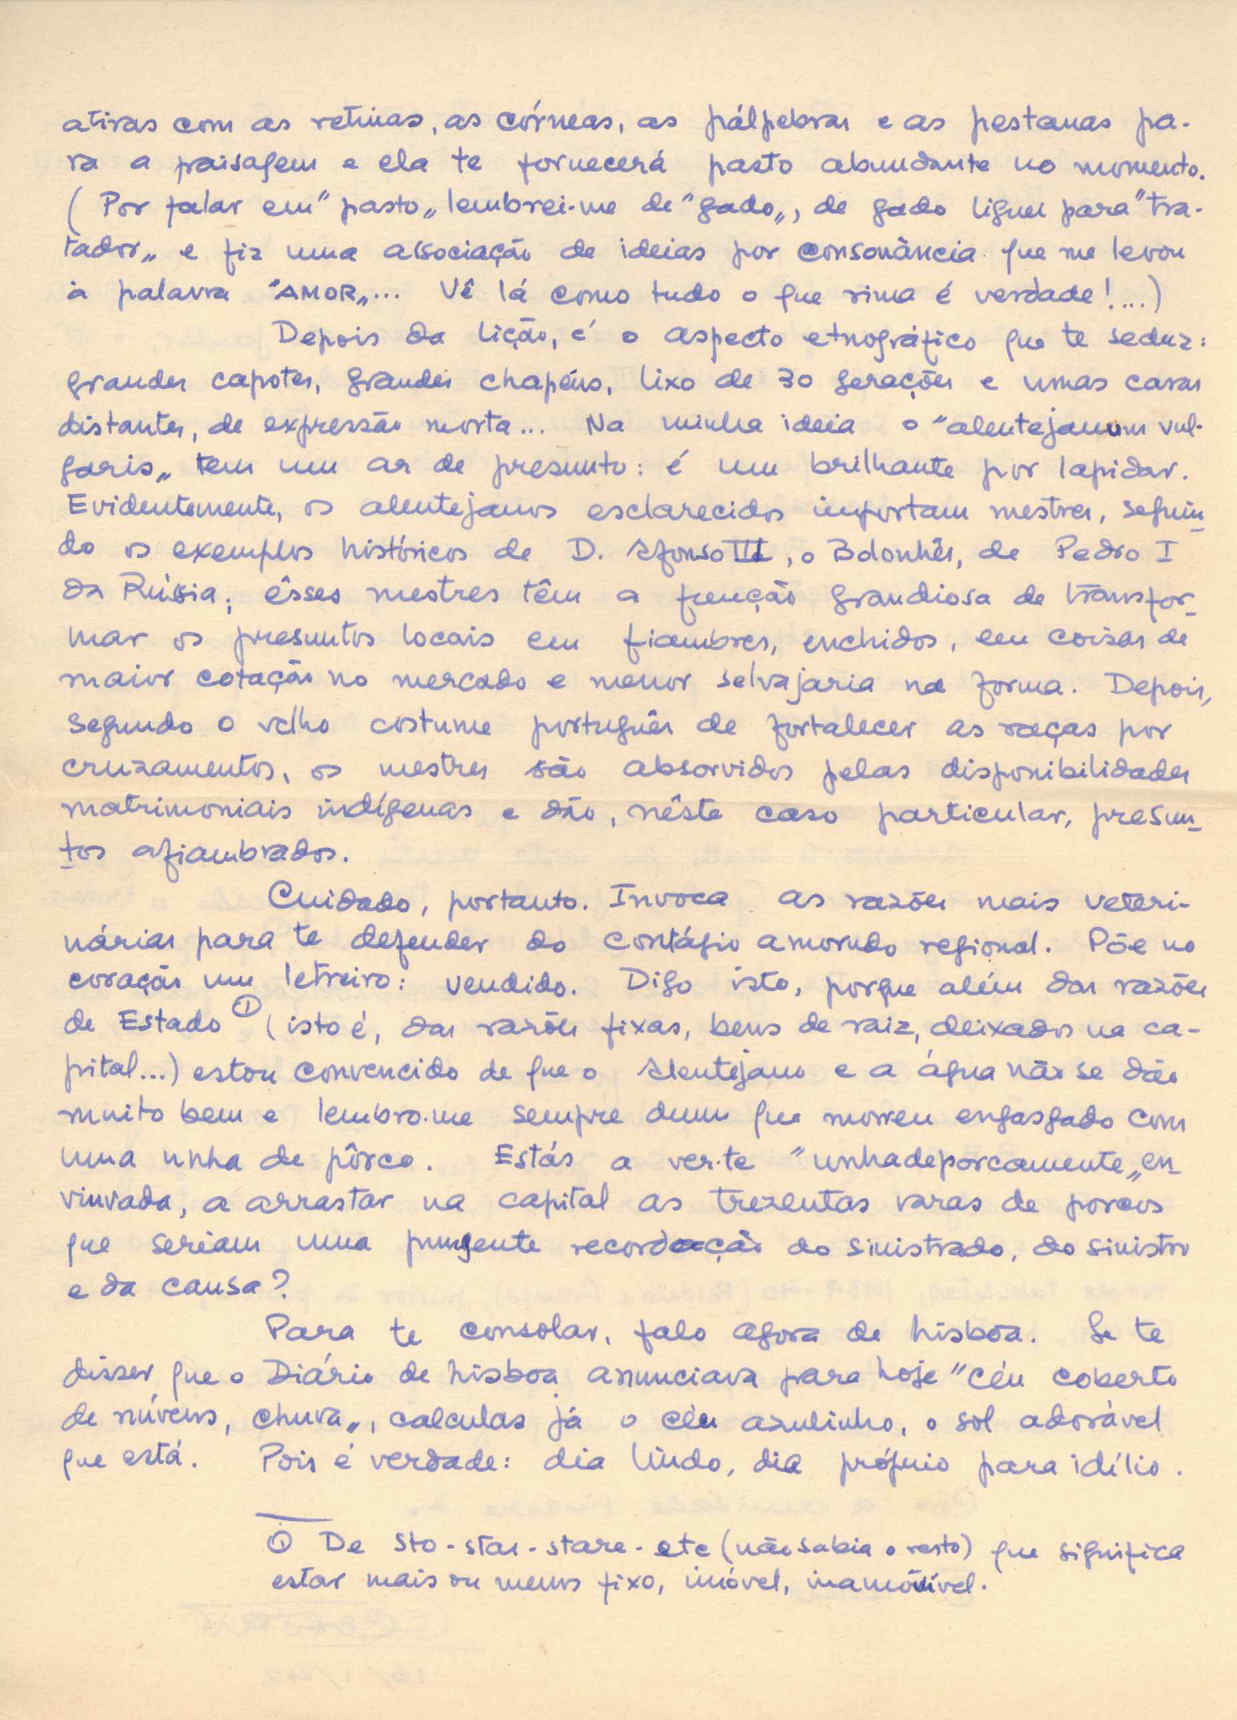 atiras com as retinas, as córneas, as pálpebras e as pestanas pa-
ra a paisagem e ela te fornecerá pasto abundante no momento.
( Por falar em "pasto„ lembrei-me de "gado„, de gado liguei para "tra-
tador„ e fiz uma associação de ideias por consonância que me levou
à palavra "AMOR„... Vê lá como tudo o que rima é verdade!...)
Depois da lição, é o aspecto etnográfico que te seduz:
grandes capotes, grandes chapéus, lixo de 30 gerações e umas caras
distantes, de expressão morta... Na minha ideia o "alentejanum vul-
garis„ tem um ar de presunto: é um brilhante por lapidar.
Evidentemente, os alentejanos esclarecidos importam mestres, seguin-
do os exemplos históricos de D. Afonso III, o Bolonhês, de Pedro I
da Rússia; êsses mestres têm a função grandiosa de transfor-
mar os presuntos locais em fiambres, enchidos, em coisas de
maior cotação no mercado e menor selvajaria na forma. Depois,
segundo o velho costume português de fortalecer as raças por
cruzamentos, os mestres são absorvidos pelas disponibilidades
matrimoniais indígenas e dão, nêste caso particular, presun-
tos afiambrados.
Cuidado, portanto. Invoca as razões mais veteri-
nárias para te defender do contágio amorudo regional. Põe no
coração um letreiro: vendido. Digo isto, porque além das razões
de Estado ① (isto é, das razões fixas, bens de raiz, deixados na ca-
pital...) estou convencido de que o Alentejano e a água não se dão
muito bem e lembro-me sempre dum que morreu engasgado com
uma unha de pôrco. Estás a ver-te "unhadeporcamente„ en-
viuvada, a arrastar na capital as trezentas varas de porcos
que seriam uma pungente recordação do sinistrado, do sinistro
e da causa?
Para te consolar, falo agora de Lisboa. Se te
disser que o Diário de Lisboa anunciava para hoje "céu coberto
de núvens, chuva„, calculas já o céu azulinho, o sol adorável
que está. Pois é verdade: dia lindo, dia próprio para idílio.
① De sto-stas-stare-etc (não sabia o resto) que significa
estar mais ou menos fixo, imóvel, inamovível.